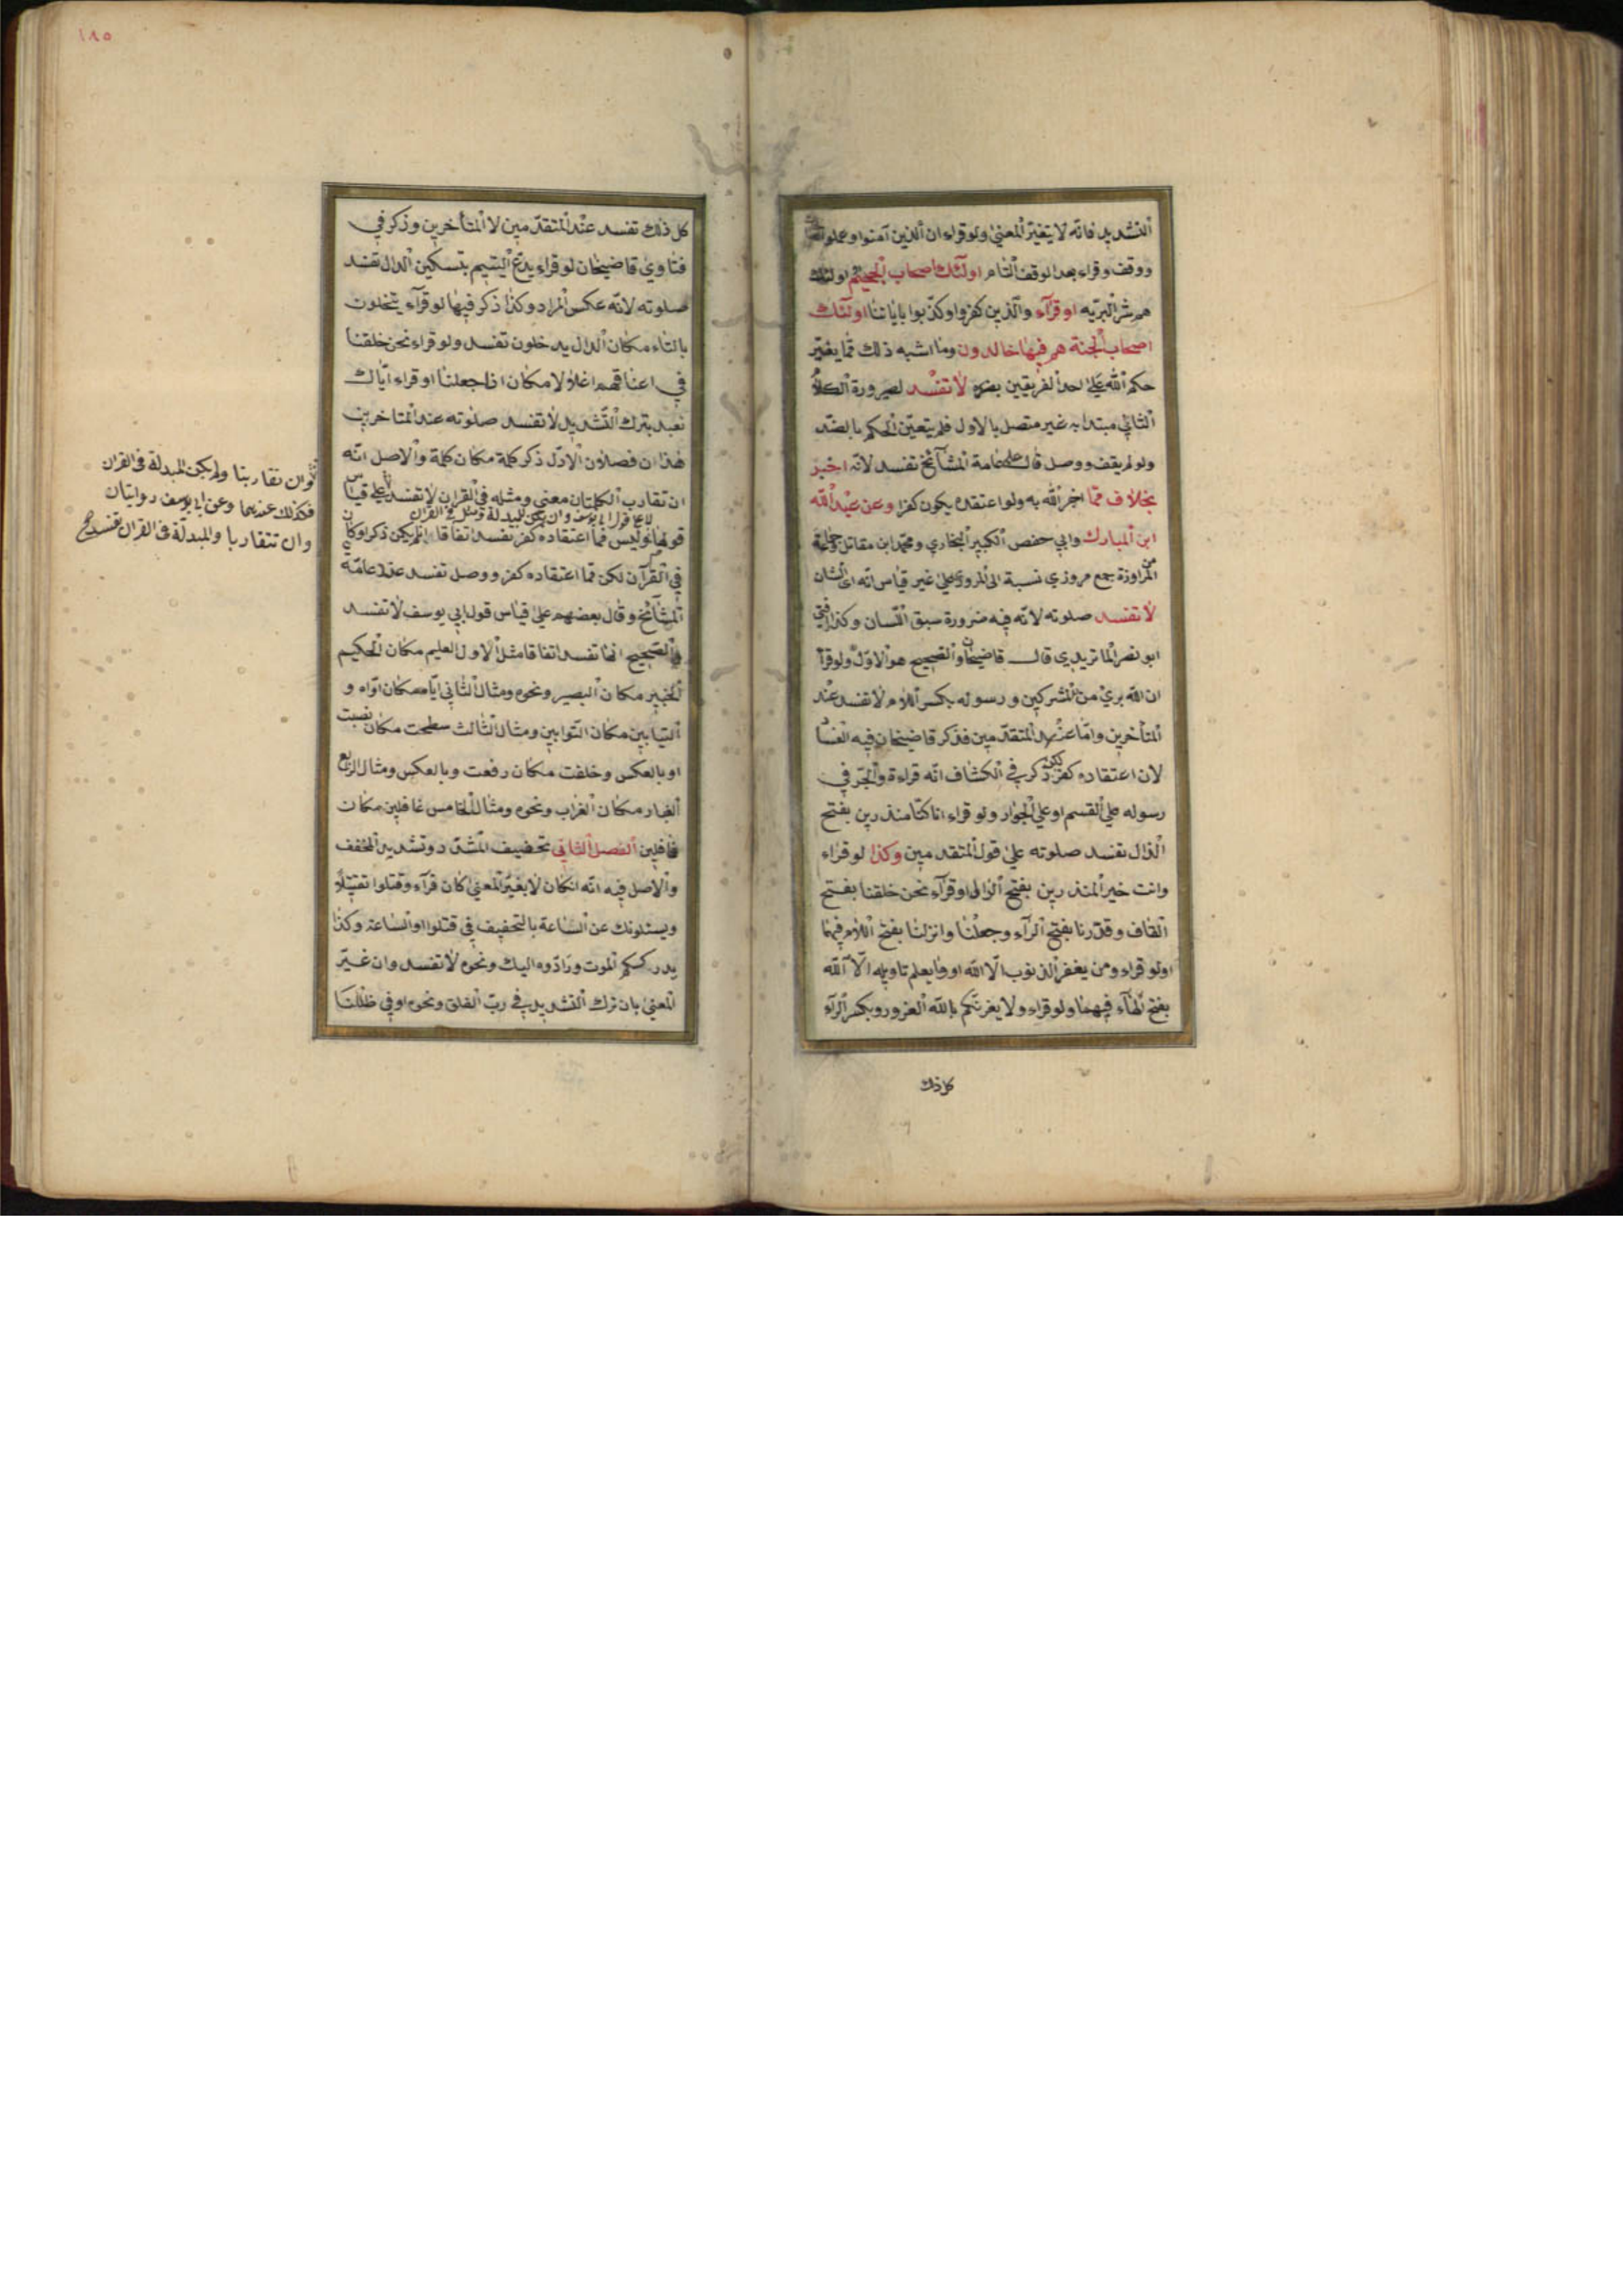 التشديد فانّه لا يتغيّر المعنى ولو قراء ان الذين آمنوا وعملوا
ووقف وقراء بعد الوقف التام اولئك اصحاب الجحيم اولئك
هم شر البريّه او قرآء والذين كفروا وكذّبوا باياتنا اولئك
اصحاب الجنة هم فيها خالدون وما اشبه ذلك ممّا يغيّر
حكم الله على احد الفريقين بضدّه لا تفسد لصيرورة الكلام
الثاني مبتدا به غير متصل بالاول فلم يتعيّن الحكم بالضدّ
ولو لم يقف ووصل قال عامة المشآئخ تفسد لانه اخبر
بخلاف ممّا اخبر الله به ولو اعتقده يكون كفرا وعن عبد الله
ابن المبارك وابي حفص الكبير البخاري ومحمّد ابن مقاتل وجماعة
من المراوزة جمع مروزي نسبة الى المرو على غير قياس انّه اي الشان
لا تفسد صلوته لانّه فيه ضرورة سبق اللسان وكذا افتي
ابو نصر الماتريدي قال قاضيخان والصحيح هو الاوّل ولو قرآ
ان الله بريء من المشركين ورسوله بكسر اللام لا تفسد عند
المتأخرين وامّا عند المتقدّمين فذكر قاضيخان فيه الفساد
لان اعتقاده كفر لكن ذكر في الكشاف انّه قراءة والجرّ في
رسوله على القسم او على الجوار ولو قراء انا كنّا منذرين بفتح
الذال تفسد صلوته على قول المتقدمين وكذا لو قراء
وانت خير المنذرين بفتح الزال او قرآء نحن خلقنا بفتح
القاف وقدّرنا بفتح الرآء وجعلنا وانزلنا بفتح اللام فيها
او لو قراء ومن يغفر الذنوب الّا الله او وما يعلم تاويله الّا الله
بفتح الهآء فيهما ولو قراء ولا يغرنّكم بالله الغرور وبكسر الرآء
كل ذلك
١٨٥
كل ذلك تفسد عند المتقدّمين لا المتأخرين وذكر في
فتاوي قاضيخان لو قراء يدع اليتيم بتسكين الدال تفسد
صلوته لانّه عكس المراد وكذا ذكر فيها لو قرآء يتخلون
بالتاء مكان الدال يدخلون تفسد ولو قراء نحن خلقنا
في اعناقهم اغلالا مكان انا جعلنا او قراء ايّاك
نعبد بترك التّشديد لا تفسد صلوته عند المتاخرين
هذا ان فصلان الاوّل ذكر كلمة مكان كلمة والاصل انّه
ان تقارب الكلمتان معني ومثله في القران لا تفسد على قياس
لا على قول ابي يوسف وان لم يكن للمبدلة مثل في القران
قولها وليس ممّا اعتقاده كفر تفسد اتفاقا لم يكن ذكر او كان
في القرآن لكن ممّا اعتقاده كفر ووصل تفسد عند عامّة
المشآئخ وقال بعضهم على قياس قول ابي يوسف لا تفسد
والصحيح انها تفسد اتفاقا مثل الاول العليم مكان الحكيم
الخبير مكان البصير ونحوه ومثال الثاني ايّاه مكان اوّاه و
التيابين مكان التوابين ومثال الثالث سطحت مكان نصبت
او بالعكس وخلقت مكان رفعت وبالعكس ومثال الرابع
الغبار مكان الغراب ونحوه ومثال الخامس غافلين مكان
فاعلين الفصل الثاني تخفيف المشدّد وتشديد المخفف
والاصل فيه انّه ان كان لا يغيّر المعني كان قرآء وقتلوا تقتيلًا
ويسئلونك عن الساعة بالتخفيف في قتلوا او الساعة وكذا
يدرككم الموت ورادّوه اليك ونحوه لا تفسد وان غيّر
المعني بان ترك التشديد في ربّ الفلق ونحوه او في ظلّلنا
وان تقاربتا ولم يكن المبدلة في القران
فكذلك عندهما وعن ابي يوسف روايتان
وان تتقاربا والمبدلة في القران تفسد صح